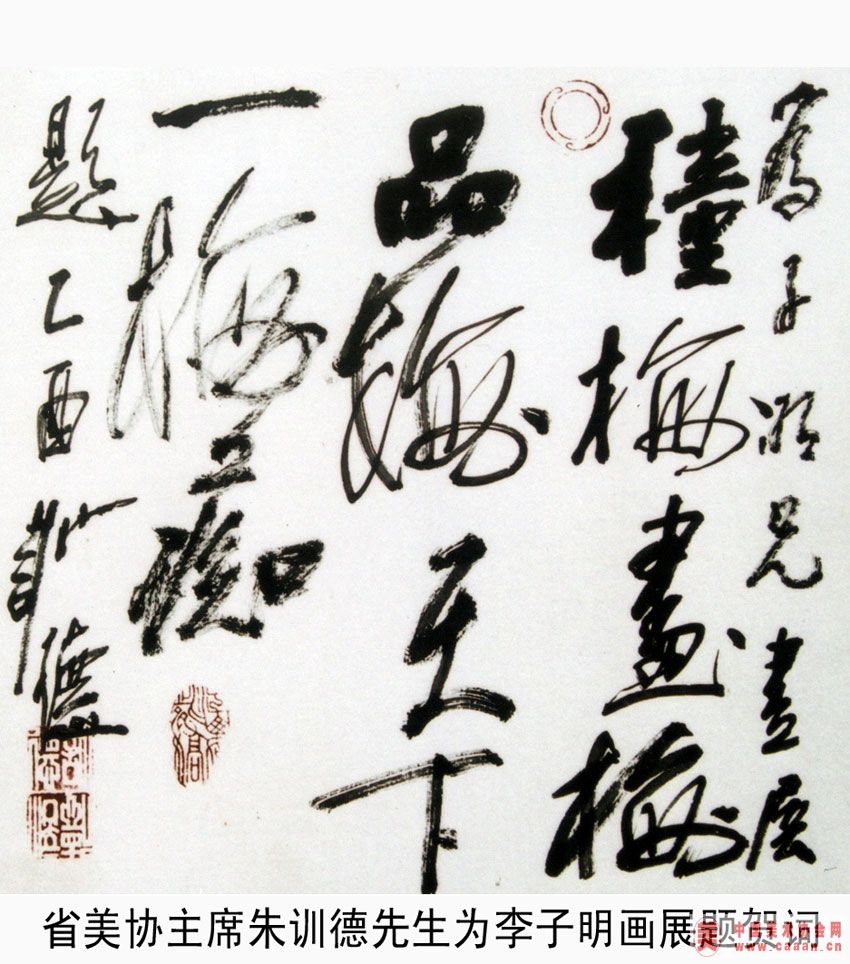 为子明兄画展
種梅畫梅
品梅天下
一梅痴
题乙酉训德
省美协主席朱训德先生为李子明画展题贺词
中国美术协会网
www.caaan.cn